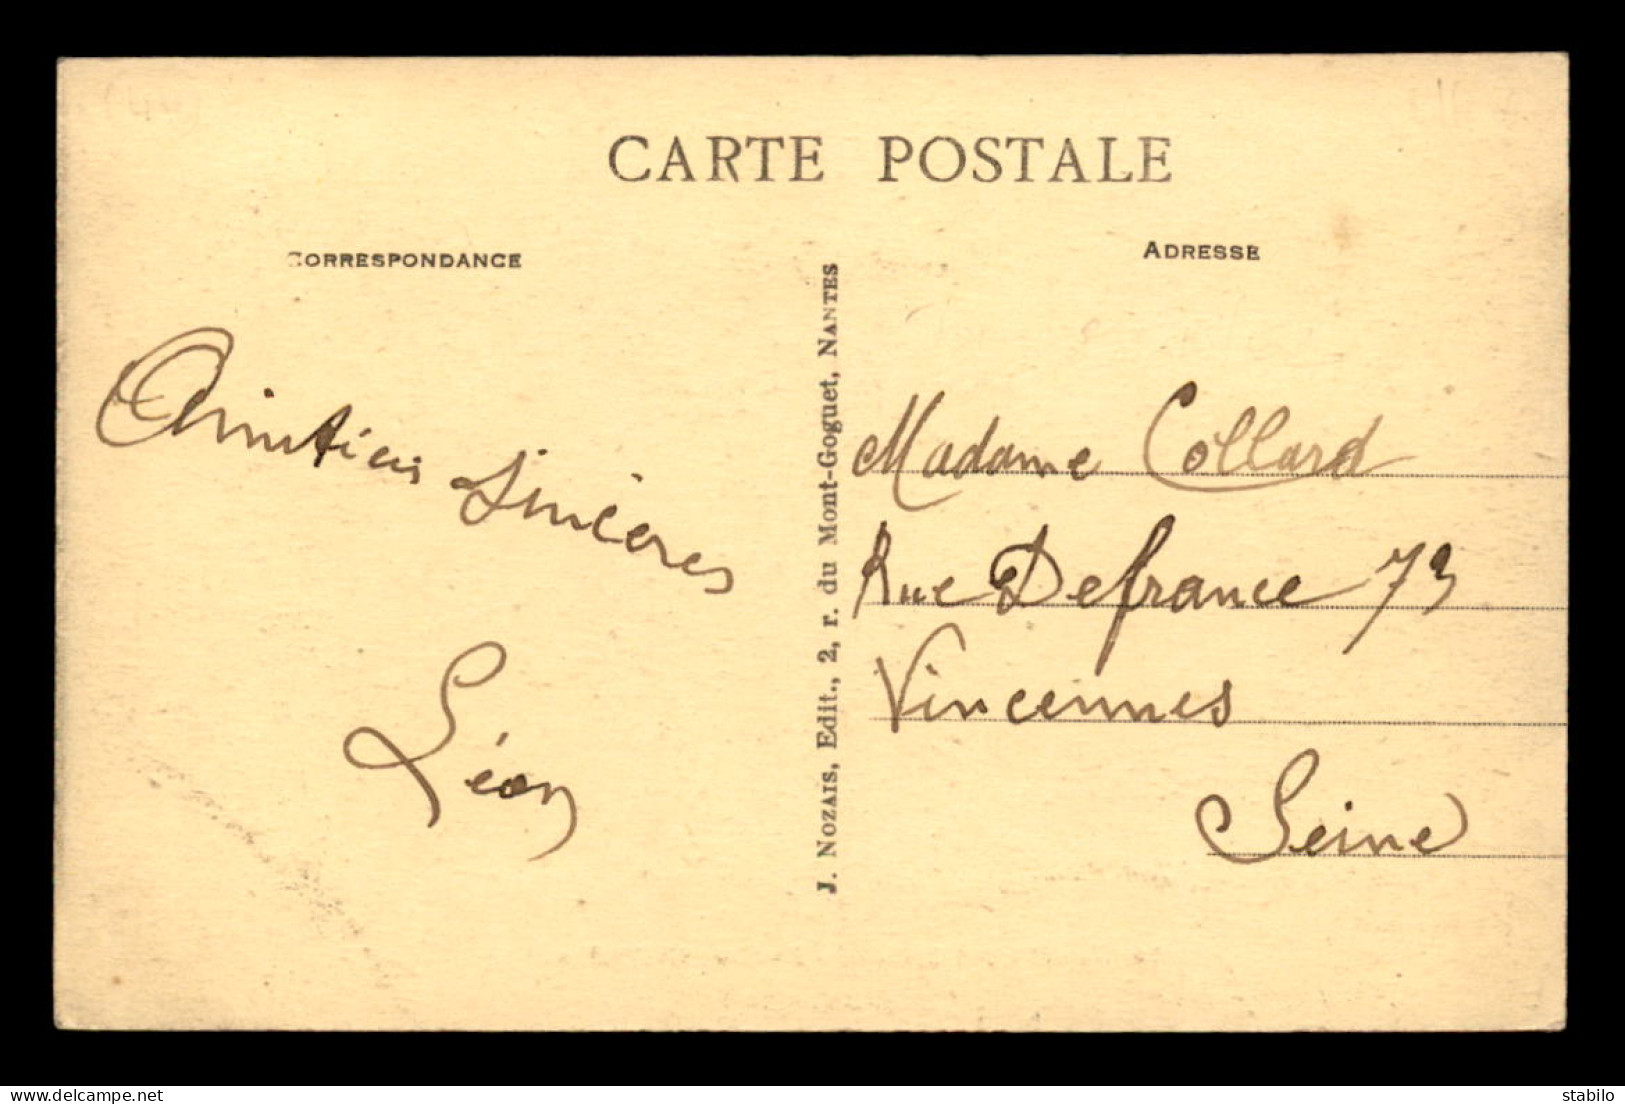 (44)
CARTE POSTALE
CORRESPONDANCE
ADRESSE
Amitiés sincères
Léon
J. NOZAIS, Edit., 2, r. du Mont-Goguet, NANTES
Madame Collard
Rue Defrance 73
Vincennes
Seine
delcampe.net
stabilo